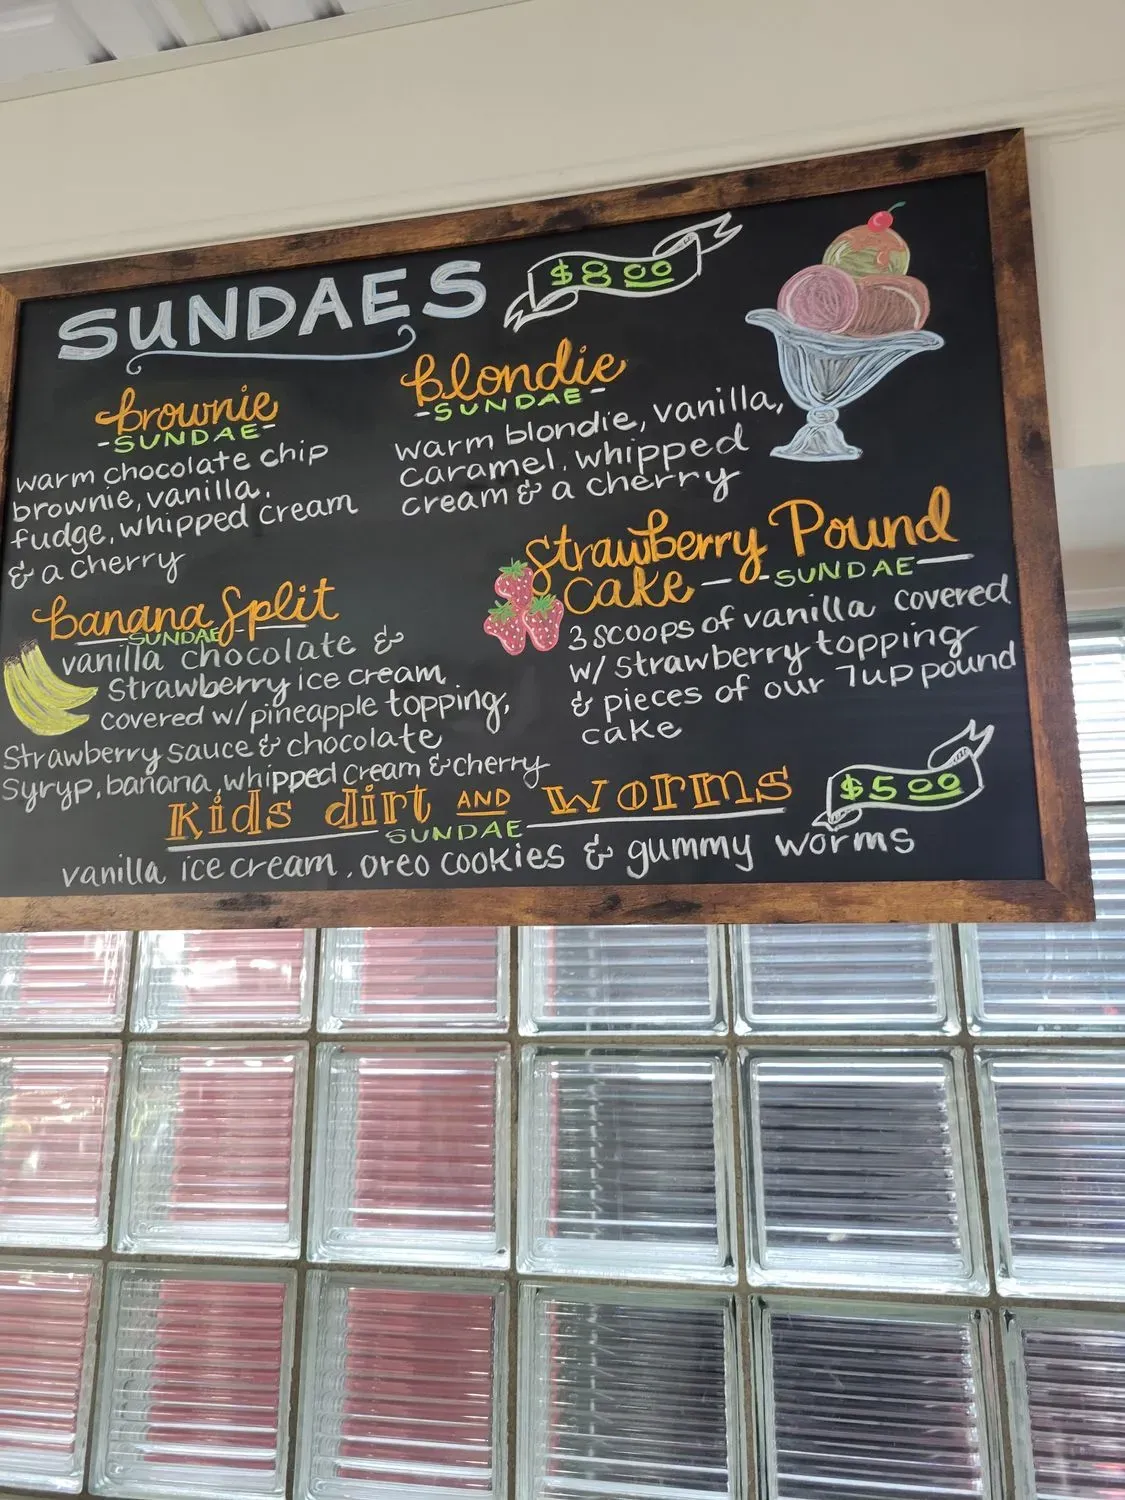 SUNDAES $8.00
brownie
-SUNDAE-
warm chocolate chip
brownie, vanilla,
fudge, whipped cream
& a cherry
blondie
-SUNDAE-
warm blondie, vanilla,
caramel, whipped
cream & a cherry
banana Split
SUNDAE
vanilla chocolate &
Strawberry ice cream
covered w/pineapple topping,
Strawberry sauce & chocolate
Syryp, banana, whipped cream & cherry
Strawberry Pound
Cake - -SUNDAE-
3 scoops of vanilla covered
w/ Strawberry topping
& pieces of our 7up pound
cake
Kids dirt AND Worms $5.00
SUNDAE
vanilla ice cream, oreo cookies & gummy worms